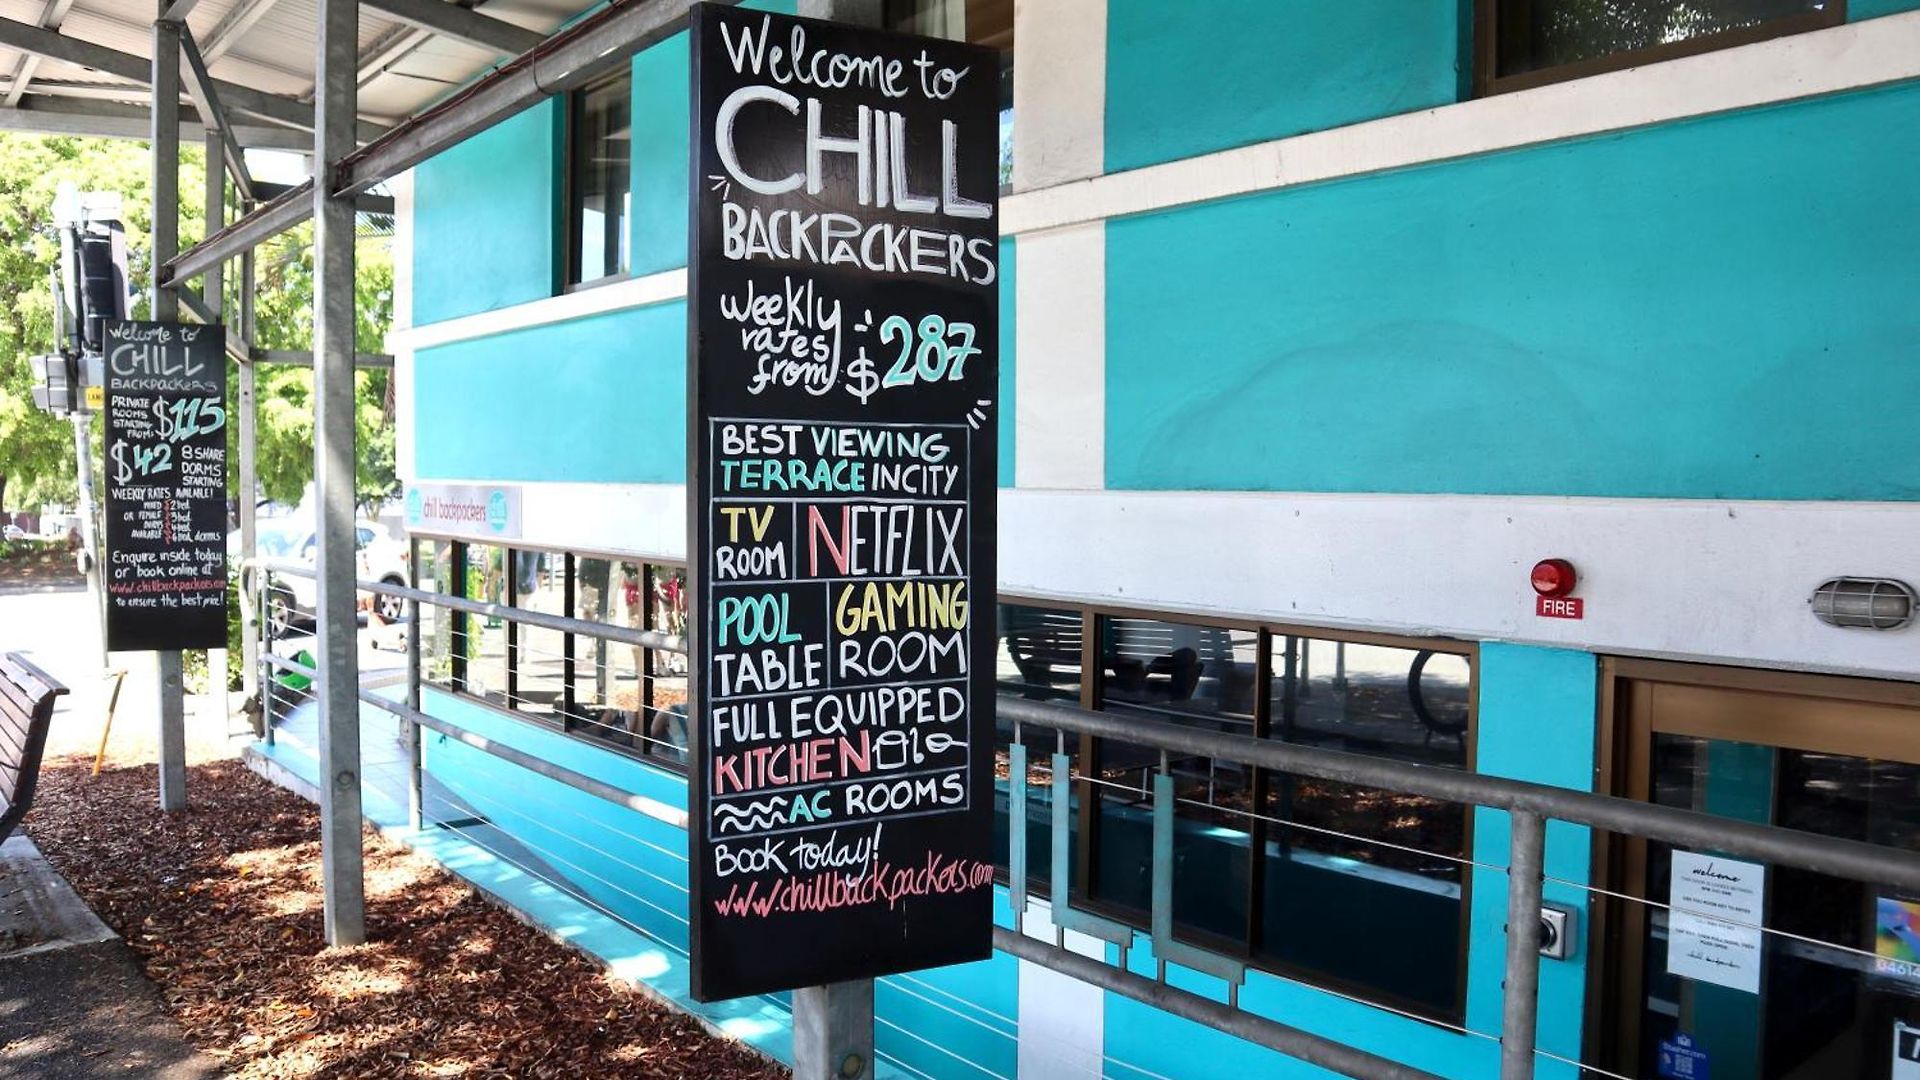 Welcome to
CHILL
BACKPACKERS
Weekly
rates
from
$287
BEST VIEWING
TERRACE IN CITY
TV
ROOM
NETFLIX
POOL
TABLE
GAMING
ROOM
FULL EQUIPPED
KITCHEN
AC ROOMS
BOOK today!
www.chillbackpackers.com
Welcome to
CHILL
BACKPACKERS
PRIVATE
ROOMS
STARTING
FROM:
$115
$42
8 SHARE
DORMS
STARTING
WEEKLY RATES AVAILABLE!
MIXED
OR FEMALE
DORMS
AVAILABLE
Enquire inside today
or book online at
www.chillbackpackers.com
to ensure the best price!
chill backpackers
FIRE
welcome